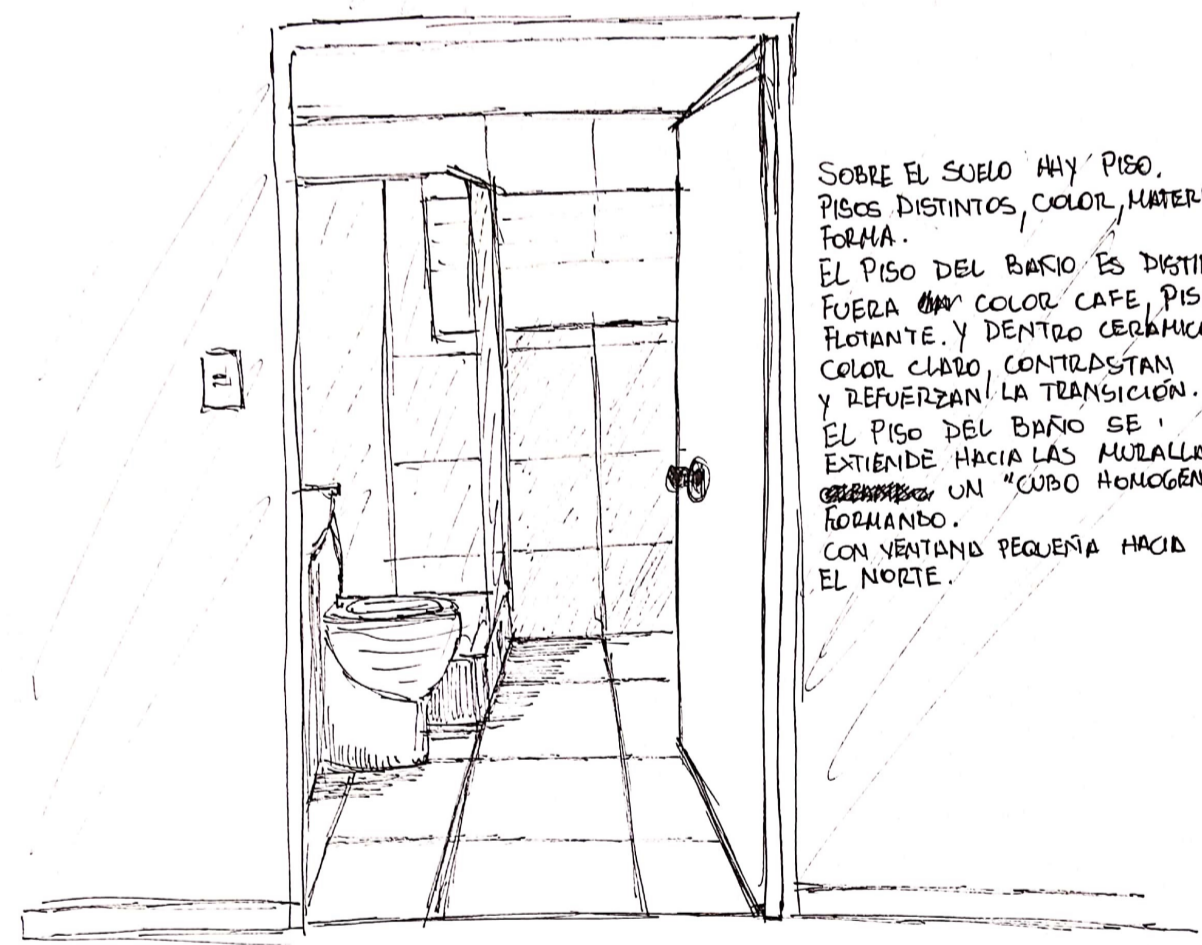 SOBRE EL SUELO HAY PISO.
PISOS DISTINTOS, COLOR, MATER
FORMA.
EL PISO DEL BAÑO ES DISTI
FUERA COLOR CAFE, PIS
FLOTANTE. Y DENTRO CERAMICA
COLOR CLARO, CONTRASTAN
Y REFUERZAN LA TRANSICIÓN.
EL PISO DEL BAÑO SE
EXTIENDE HACIA LAS MURALLA
UN "CUBO HOMOGEN
FORMANDO.
CON VENTANA PEQUEÑA HACIA
EL NORTE.